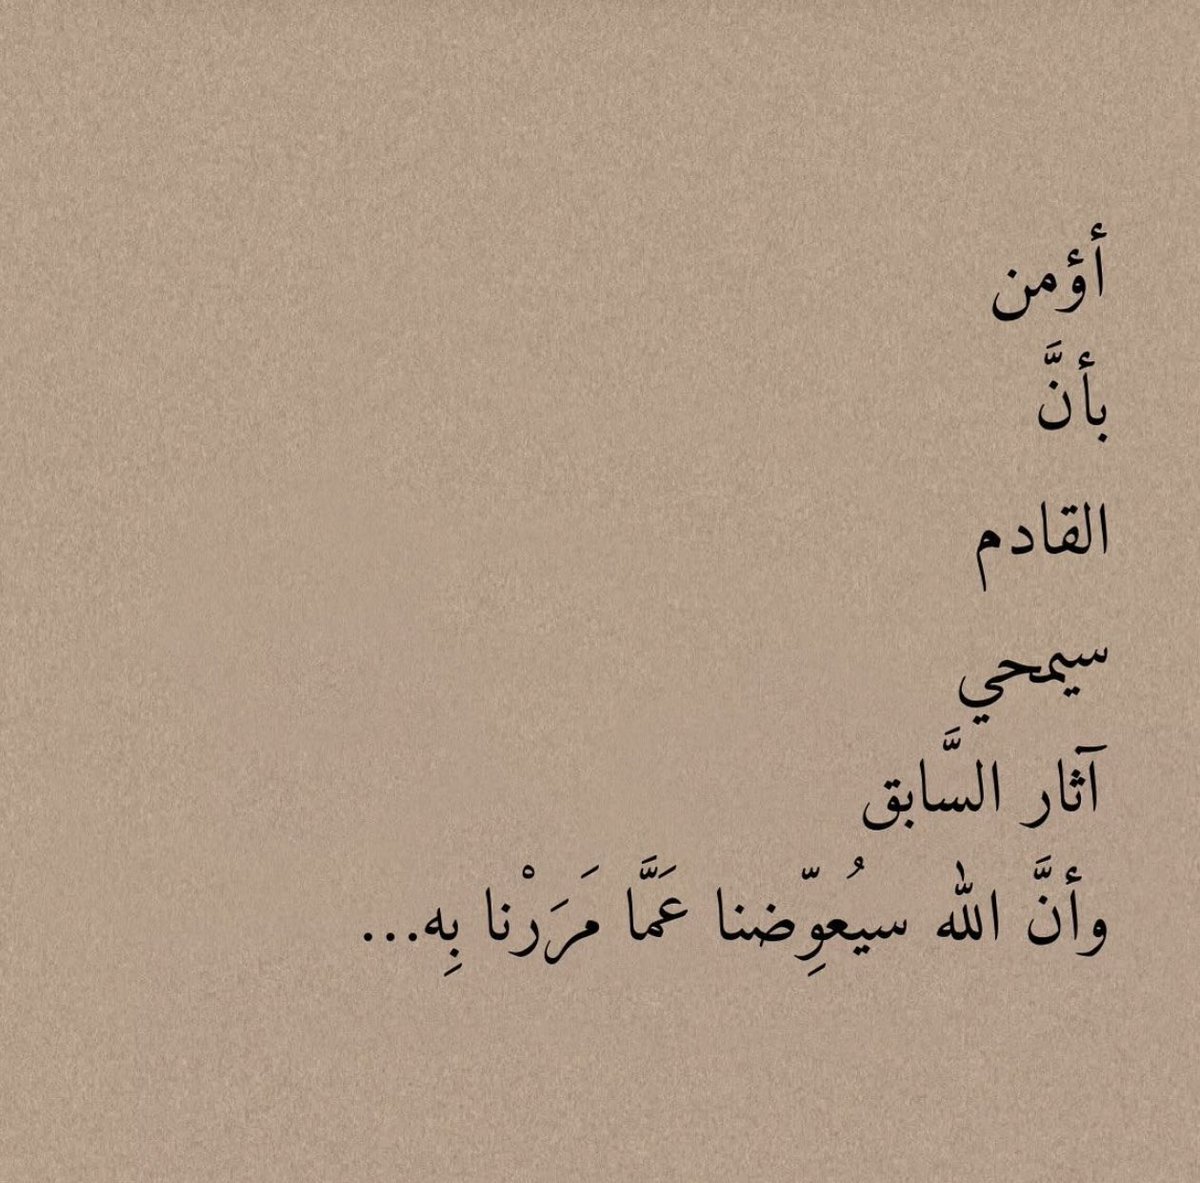 أؤمن
بأنَّ
القادم
سيمحي
آثار السَّابق
وأنَّ الله سيُعوِّضنا عَمَّا مَرَرْنا بِه...